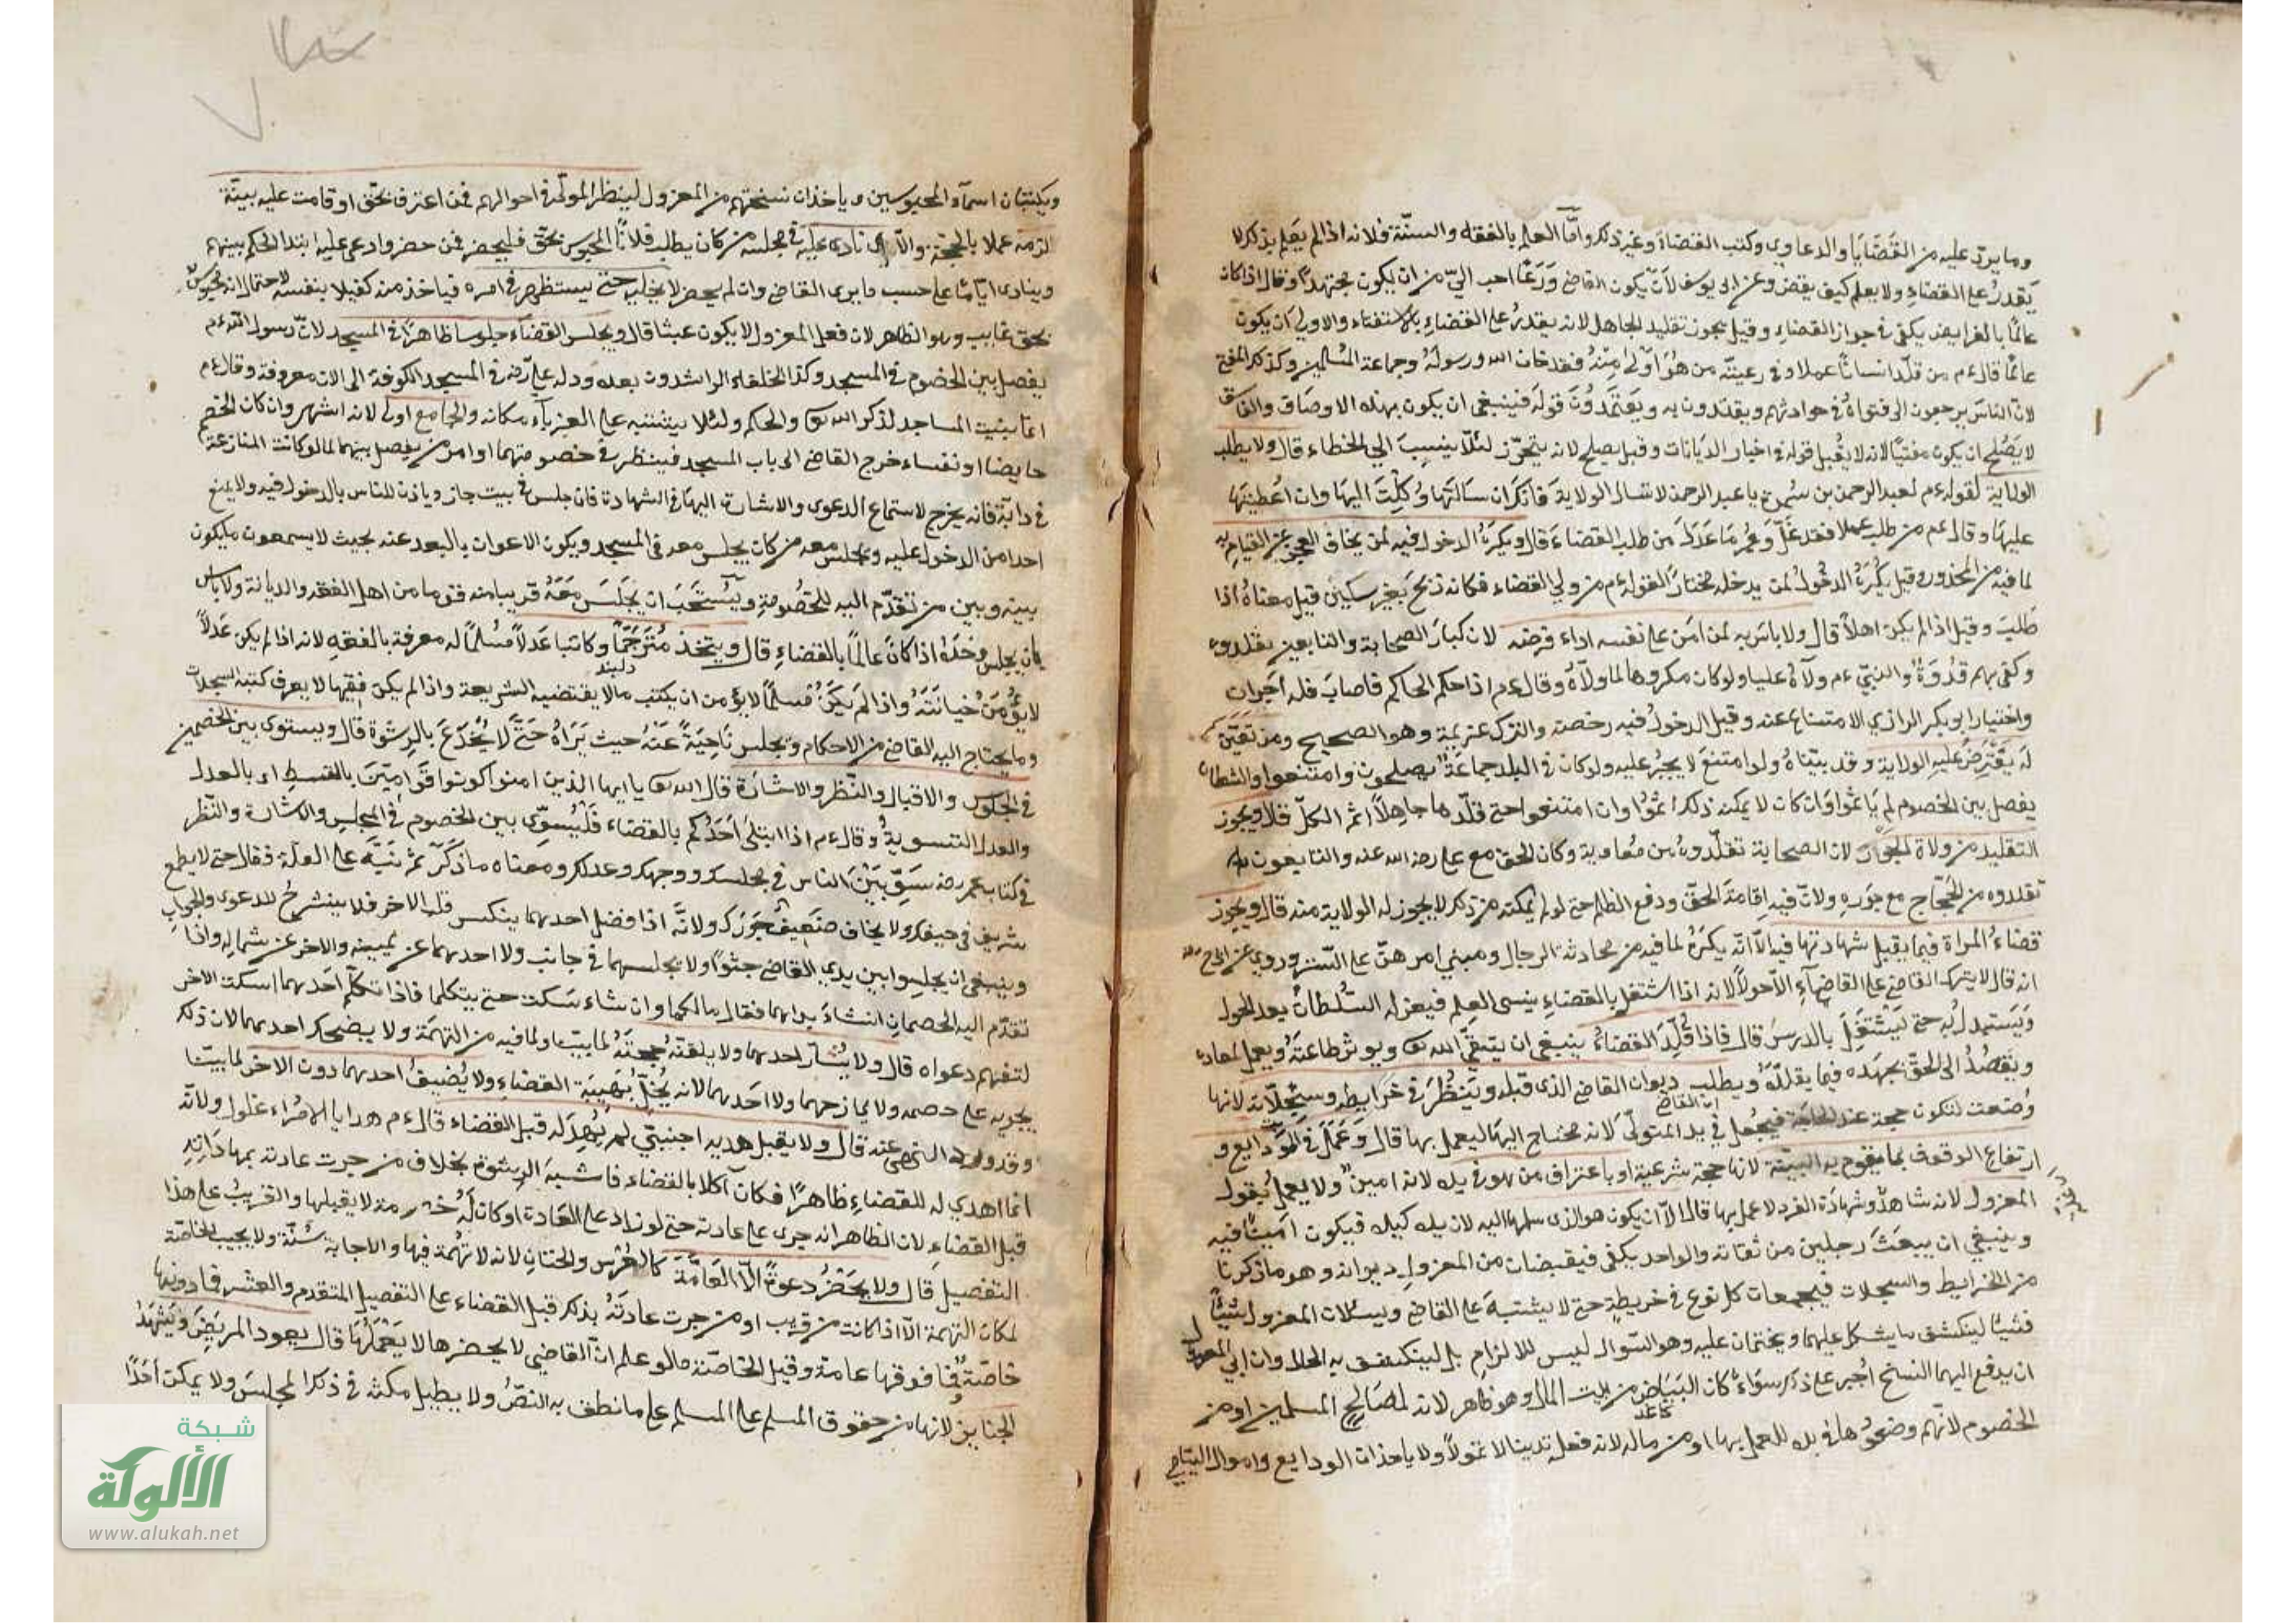 وما يرد عليه من القَضَايَا والدعاوي وكتب القضاة وغير ذلك وامّا العلم بالفقه والسنّة فلانه اذا لم يعلم بذلك لا
يَقدرُ على القضاءِ ولا يعلم كيف يقضى وعن ابى يوسف لَأنْ يكون القاضى وَرَعًا احب اليّ من ان يكون مجتهدًا وقال اذا كان
عالمًا بالفرايض يكفى فى جواز القضاءِ وقيل يجوز تقليد الجاهل لانه يقدرُ على القضاءِ بالاستفتاء والاولى ان يكون
عالمًا قال ءم من قلّد انسانًا عملا وفى رعيته من هُوَ اَوْلى مِنْهُ فقد خان الله ورسولَهُ وجماعة المُسْلمين وكذلك المفتى
لانّ الناسَ يرجعون الى فتواهُ فى حوادثهم ويقتدون به ويَعْتَمدُوْنَ قولَه فينبغى ان يكون بهذه الاوصاف والفاسق
لا يَصْلح ان يكون مفتيًا لانه لا يُقبل قوله فى اخبار الديانات وقيل يصلح لانه يتحرّز لئلّا ينسب الي الخطاء قال ولا يطلب
الولاية لقوله ءم لعبد الرحمن بن سُمرة يا عبد الرحمن لا تسال الولاية فانك ان سَالتَها وُكِلْتَ اليهَا وان اُعْطيْتَها
عليهَا وقال ءم من طلب عملا فقد غلّ وَعُمر مَا عَدَلَ من طلب القضاءَ قال ويكرَهُ الدخول فيه لمن يخاف العجز عن القيام به
لما فيه من المحذور وقيل يكْرَهُ الدخُولُ لمن يدخله مختارًا لقوله ءم من ولي القضاء فكانه ذبح بغير سكين قيل معناهُ اذا
طَلَبَ وقيل اذا لم يكن اهلًا قال ولا باس به لمن امن على نفسه اداء فرضه لان كبارَ الصحابة والتابعين تقلدوه
وكفى بهم قدْوَةً والنبيّ ءم ولّاهُ عليا ولو كان مكروها لما ولّاهُ وقال ءم اذا حكم الحاكم فاصابَ فله اَجران
واختيار ابو بكر الرازي الامتناع عنه وقيل الدخولُ فيه رخصة والترك عزيمة وهو الصحيح ومن تَعَيّنَ
لَه يَفْتَرِضُ عليهِ الولاية وقد بيّناهُ ولو امتنعَ لا يجبرُ عليه ولو كان فى البلد جماعةٌ يصلحون وامتنعوا والسلطان
يفصل بين الخصوم لم يَاثمُوا وان كان لا يمكنه ذلك اثمُوا وان امتنعوا حتى قلّدها جاهلًا اثم الكلّ قال ويجوز
التقليد من ولاة الجَوْر لان الصحابة تقلّدوهُ من مُعاوية وكان الحق مع على رضى الله عنه والتابعون
تقلدوه من الحَجّاج مع جَوره ولانّ فيه اِقامة الحقّ ودفع الظلم حتى لو لم يمكنه من ذلك لا يجوز له الولاية منه قال ويجوز
قضاءُ المراة فيما يقبل شهادتها فيه الّا انّه يكرَهُ لما فيه من محادثة الرجال ومبنى امرهنّ على السّتر وروى عن ابى ح
انه قال لا يترك القاضى على القضاء الا حولًا لانه اذا اشتغل بالقضاءِ ينسى العلم فيعزله السُّلطانُ بعد الحول
وَيَستبدل به حتى يَشتغلَ بالدرس قال فاذا قُلّدَ القضاءُ ينبغى ان يتّقيَ الله تعالى ويوثر طاعتَهُ ويعمل لمعاده
ويَقصُدُ الى الحقّ بجهده فيما يقلدهُ ويطلب ديوان القاضى الذى قبله ويَنْظُرَ فى خرايطه وسجلّاته لانها
وُضعت لتكون حجة عند الحاجة فيُجعل فى يد المتولّى لانه محتاج اليها ليعمل بها قال وَعَمَلَ فى الوَدايع و
ارتفاع الوقوف بما يقوم به البيّنة لانها حجة شرعية او باعتراف من هو فى يده لانه امينٌ ولا يعمل بقول
المعزول لانه شاهدٌ وشهادَة الفرد لا عمل بها قال الّا ان يكون هو الذى سلمها اليه لان يده كيده فيكون امينًا فيه
وينبغي ان يبعثَ رجلين من ثقاته والواحد يكفى فيقبضان من المعزول ديوانه وهو ما ذكرنا
من الخرايط والسجلات فيجمعان كل نوع فى خريطةٍ حتى لا يشتبهَ على القاضى ويسئلان المعزول شيئًا
فشيئًا لينكشف ما يشكل عليهما ويختمان عليه وهو السّوال ليس للالزام بل لينكشف به الحال وان ابى المعزول
ان يدفع اليهما النسخ اُجبر على ذلك سَوَاءٌ كان البَيَاض من بيت المال وهو ظاهر لانه لمصالح المسلمين او من
الخصوم لانّهم وضعُوها فى يده للعمل بها او من ماله لانه فعله تدينا لا تموّلًا ولا ياخذان الودايع واموال اليتامى
ويكتبان اسمآء المحبوسين وياخذان نسختهم من المعزول لينظر المولّى فى احوالهم فمن اعترف بحقّ او قامت عليه بينّة
الزمه عملا بالحجة والّا نادى عليه فى مجلسه من كان يطلب فلانًا المحبوس بحقّ فليحضر فمن حضر وادعى عليه ابتدا الحكم بينهم
وينادى ايّامًا على حسب ما يرى القاضى وان لم يحضر لا يخليه حتى يستظهر فى امره فياخذ منه كفيلا بنفسه لاحتمال انه محبوسٌ
بحق غايب وهو الظاهر لان فعل المعزول لا يكون عبثا قال ويجلس القضاء جلوسا ظاهرًا فى المسجد لانّ رسول الله ءم
يفصل بين الخصوم فى المسجد وكذا الخلفاء الراشدون بعده ودله على رضى فى المسجد الكوفة الى الان معروفة وقال ءم
انما بنيت المساجد لذكر الله تعالى والحكم ولئلا يشتبه على الغربآء مكانه والجامع اولى لانه اشهر وان كان الخصم
حايضا او نفساء خرج القاضى الى باب المسجد فينظر فى خصومتهما او امر من يفصل بينهما كما لو كانت المنازعة
فى دابّة فانه يخرج لاستماع الدعوى والاشارة اليها فى الشهادة فان جلس فى بيته جاز وياذن للناس بالدخول فيه ولا يمنع
احدا من الدخول عليه ويجلس معه من كان يجلس معه فى المسجد ويكون الاعوان بالبعد عنه بحيث لا يسمعون ما يكون
بينه وبين من تقدّم اليه للخصُومةِ ويُسْتحَبّ ان يجلسَ مَعَهُ قريبا منه قوما من اهل الفقه والديانة ولا باس
بان يجلس وَحْدَهُ اذا كان عالمًا بالقضاءِ قال ويتخذ مُتَرْجَمًا وكاتبا عَدلًا مُسْلمًا له معرفة بالفقه لانه اذا لم يكن عَدلًا
لا يؤْمَنُ خيانَتَهُ واذا لم يَكنْ مُسلمًا لا يؤمن ان يكتب ما لا يقتضيه الشريعة واذا لم يكن فقيها لا يعرف كتبة السجلات
وما يحتاج اليه القاضى من الاحكام ويجلس نَاحِيَةً عَنْهُ حيث يَرَاهُ حَتّى لَا يُخْدَعَ بالرشوة قال ويستوى بين الخصمين
فى الجلوس والاقبال والنّظر والاشارة قال الله تعالى يا ايها الذين امنوا كونوا قوّامِيْنَ بالقسطِ اى بالعدل
والعدل التسويةُ وقال ءم اذا ابتلىَ اَحَدُكم بالقضاء فَلْيُسَوِّى بين الخصوم فى المجلسِ والاشارة والنّظر
فى كتاب عمر رضه سَوِّ بَيْنَ الناس فى مجلسك ووجهك وعدلك ومعناه ما ذكر ثم نَبّهَ على العلّة فقال حتى لا يطمع
شريف فى حيفك ولا يخاف ضعيفٌ جَوْرَك ولانّه اذا فضل احدهما ينكسر قلب الاخر فلا ينشرحُ للدعوى والجواب
وينبغى ان يجلسوا بين يدى القاضى جثوًّا ولا يجلسهما فى جانب ولا احدهما عن يمينه والاخر عن شماله واذا
تقدّم اليه الخصمان ان شاءَ بداهما فقال ما لكما وان شاء سَكت حتى يتكلما فاذا تكلّم اَحَدهما اسكت الاخر
لتفهم دعواه قال ولا يُسَارّ احدهما ولا يلقنهُ حجتَهُ لما بيّنا ولما فيه من التهمَة ولا يضحك احدهما لان ذلك
يجريه على خصمه ولا يمازحهما ولا احَدهما لانه يُخلّ بهَيبَة القضاءِ ولا يُضيفُ احدهما دون الاخر لما بيّنا
وقد ورد النهى عنه قال ولا يقبل هدية اجنبىّ لم يُهْدِ لَه قبل القضاء قال ءم هدايا الامراءِ غلول ولانّه
انما اهدي له للقضاءِ ظاهرًا فكان آكلا بالقضاء فاشبهَ الرشوة بخلاف من جرت عادته بمهاداته
قبل القضاءِ لان الظاهر انه جرى على عادته حتى لو زاد على العادة او كان لَهُ خصومة لا يقبلها والقريبُ على هذا
التفصيل قال ولا يحَضُرُ دعوةً الّا العَامّةَ كالعُرْس والختان لانه لا تهُمة فيها والاجابة سُنّة ولا يجيب الخاصّة
لمكان التهمة الّا اذا كانت من قريب او من جرت عادتَهُ بذلك قبل القضاء على التفصيل المتقدم والعشر فما دونها
خاصّة فما فوقها عامة وقيل الخاصّة ما لو علم انّ القاضي لا يحضرها لا يَعْمَلهَا قال يعود المريضَ ويَشْهَدُ
الجنايز لانها من حقوق المسلم على المسلم على ما نطق به النصّ ولا يطيل مكثه فى ذلك المجلسَ ولا يمكن اَحَدًا
شبكة
الألوكة
www.alukah.net